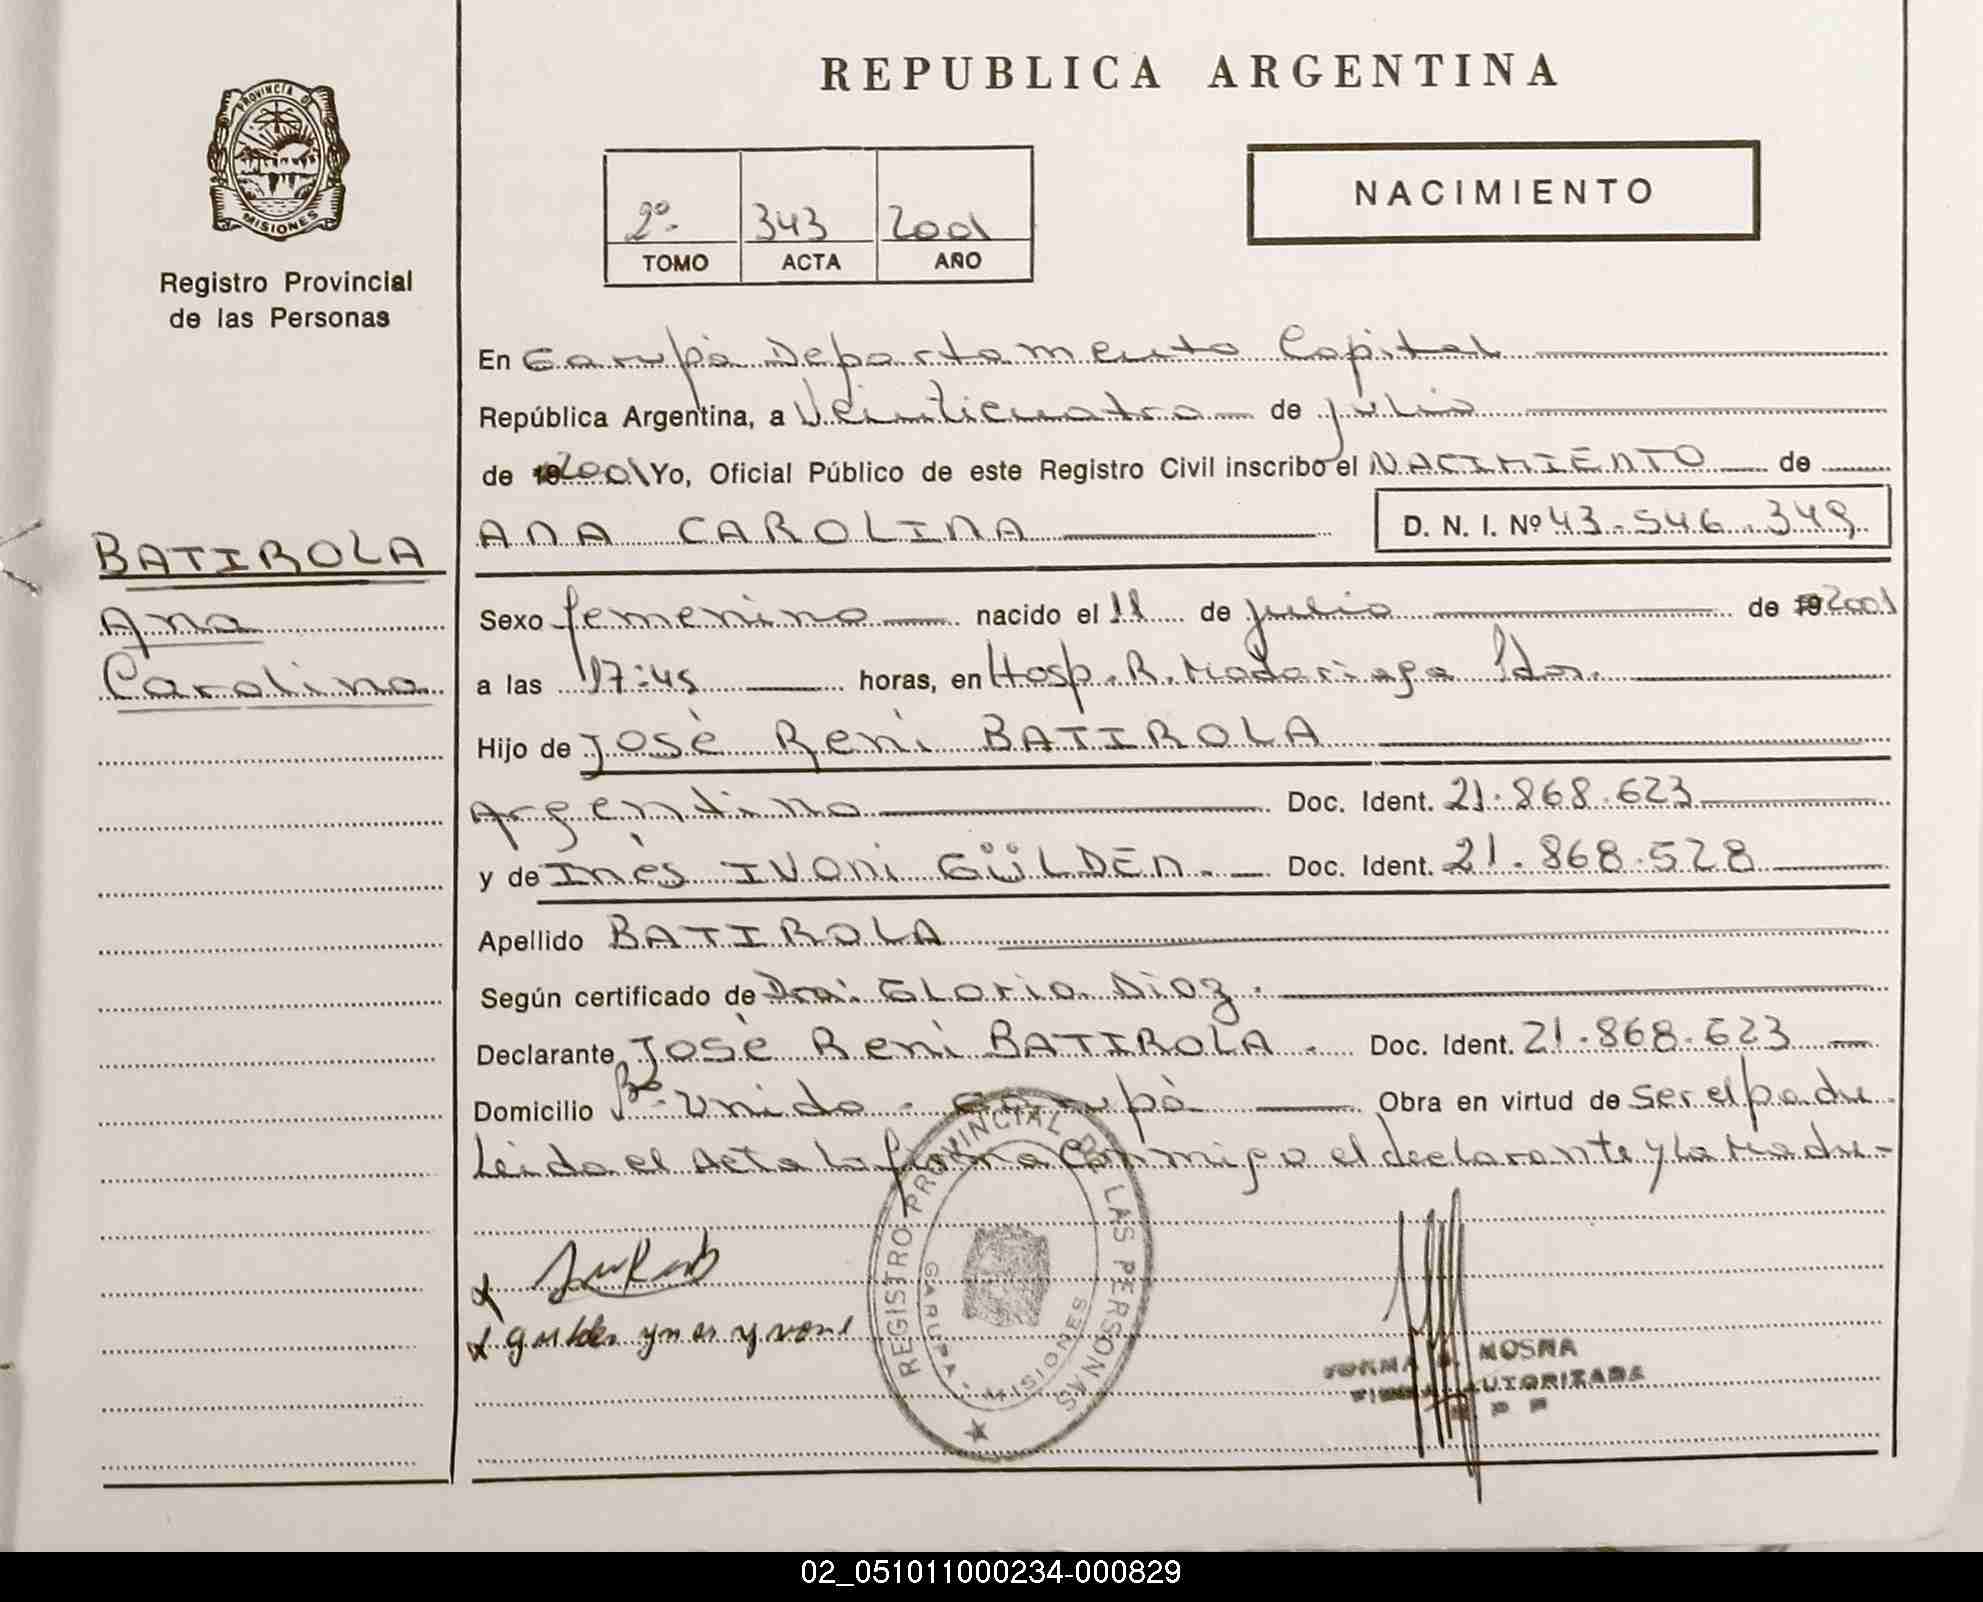 REPUBLICA ARGENTINA
PROVINCIA DE
MISIONES
Registro Provincial
de las Personas
2º- 343 2001
TOMO ACTA AÑO
NACIMIENTO
En Garupá Departamento Capital
República Argentina, a Veinticuatro de julio
de 2001 Yo, Oficial Público de este Registro Civil inscribo el NACIMIENTO de
ANA CAROLINA D. N. I. Nº 43.546.349
BATIROLA
Ana
Carolina
Sexo femenino nacido el 11 de julio de 2001
a las 17:45 horas, en Hosp. R. Madariaga Pdas.
Hijo de José Reni BATIROLA
Argentino Doc. Ident. 21.868.623
y de Inés IVONI GÜLDEN. Doc. Ident. 21.868.528
Apellido BATIROLA
Según certificado de Dra. Gloria Diaz.
Declarante José Reni BATIROLA. Doc. Ident. 21.868.623
Domicilio Bº Unido - Garupá Obra en virtud de ser el padre
Leida el Acta la firma conmigo el declarante y la Madre-
REGISTRO PROVINCIAL DE LAS PERSONAS
GARUPA - MISIONES
gulden ynes yvone
MOSNA
FIRMA AUTORIZADA
02_051011000234-000829